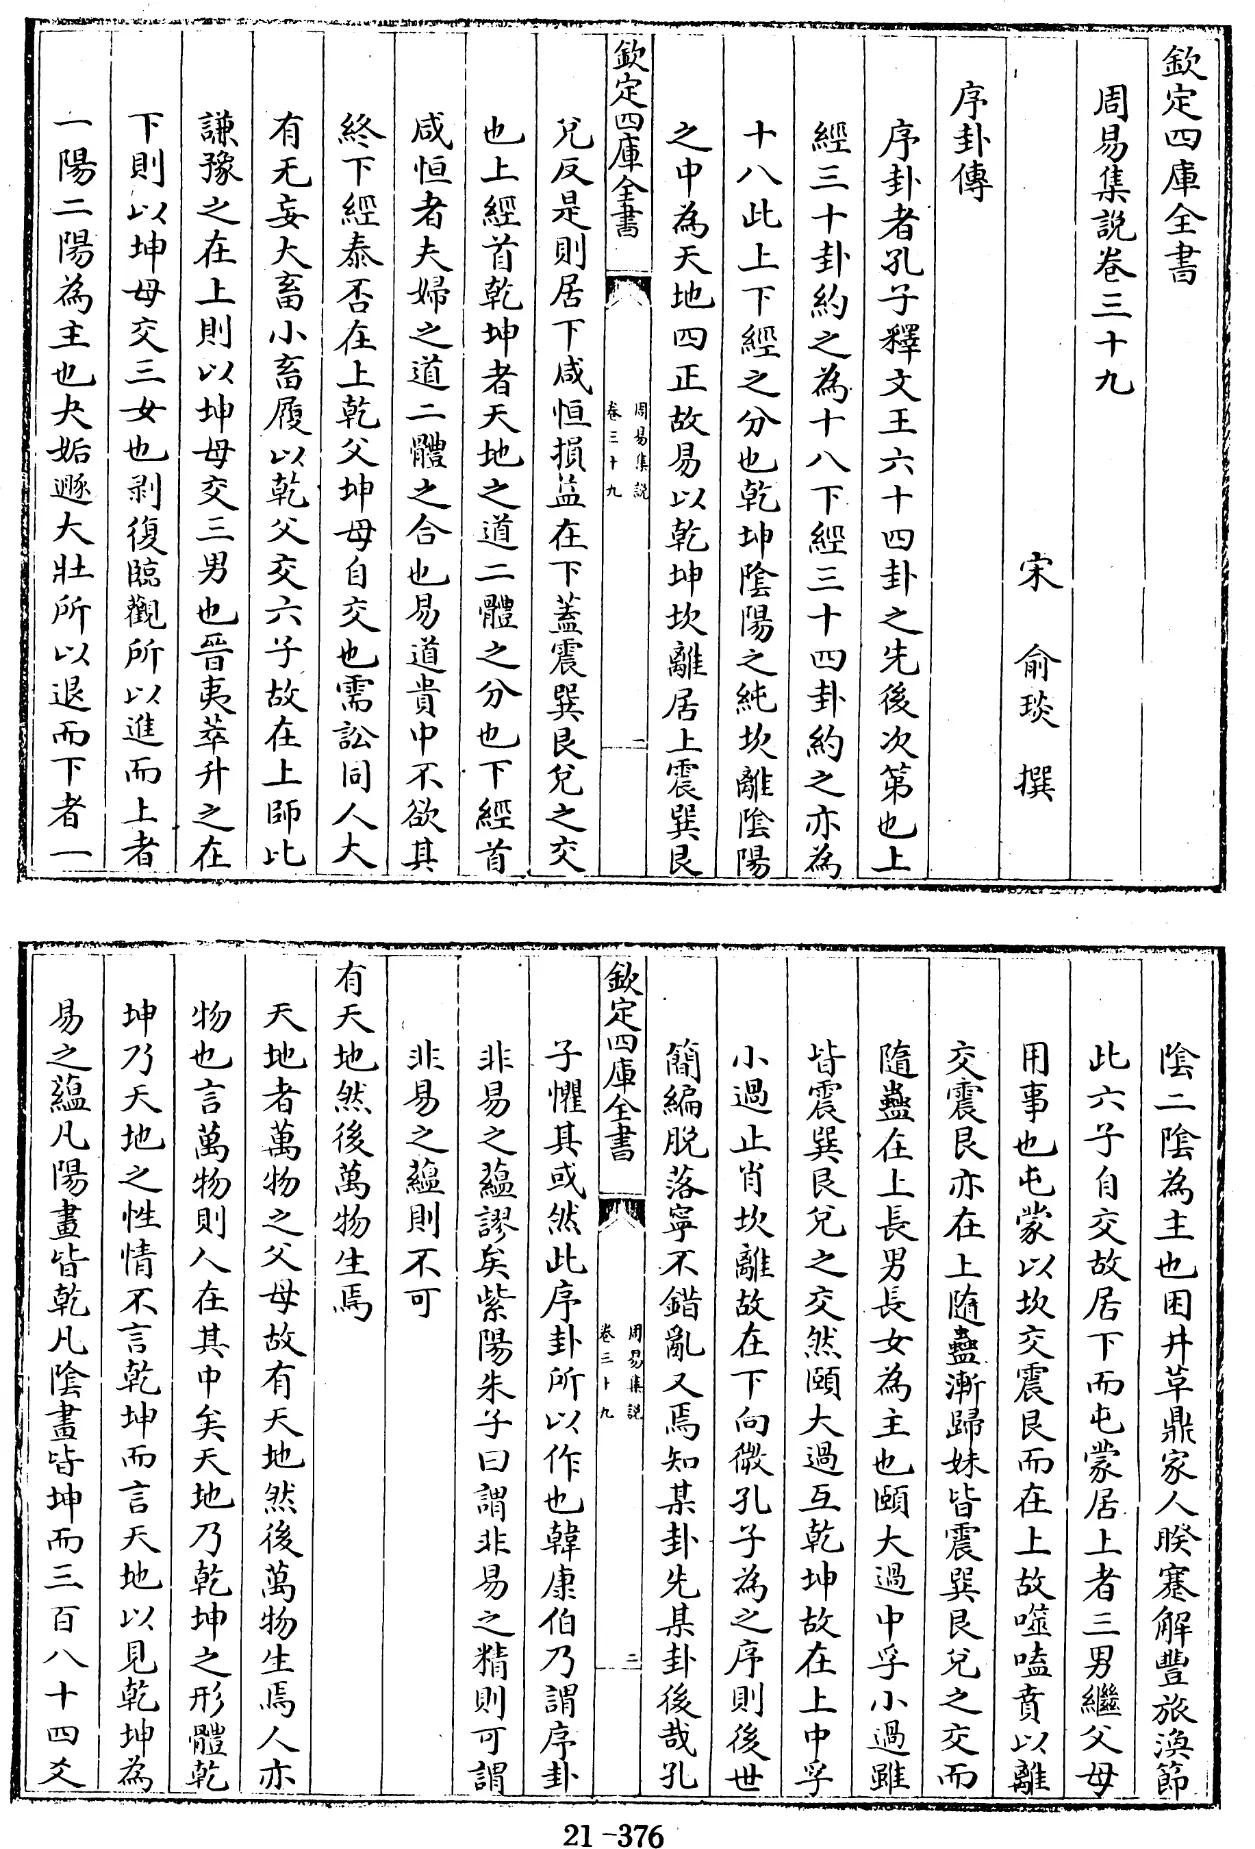 欽定四庫全書
周易集說卷三十九
宋 俞琰 撰
序卦傳
序卦者孔子釋文王六十四卦之先後次第也上
經三十卦約之為十八下經三十四卦約之亦為
十八此上下經之分也乾坤陰陽之純坎離陰陽
之中為天地四正故易以乾坤坎離居上震巽艮
欽定四庫全書
周易集說
卷三十九
二
兌反是則居下咸恒損益在下蓋震巽艮兌之交
也上經首乾坤者天地之道二體之分也下經首
咸恒者夫婦之道二體之合也易道貴中不欲其
終下經泰否在上乾父坤母自交也需訟同人大
有无妄大畜小畜履以乾父交六子故在上師比
謙豫之在上則以坤母交三男也晉夷萃升之在
下則以坤母交三女也剥復臨觀所以進而上者
一陽二陽為主也夬姤遯大壯所以退而下者一
陰二陰為主也困井革鼎家人睽蹇解豐旅渙節
此六子自交故居下而屯蒙居上者三男繼父母
用事也屯蒙以坎交震艮而在上故噬嗑賁以離
交震艮亦在上隨蠱漸歸妹皆震巽艮兌之交而
隨蠱在上長男長女為主也頤大過中孚小過雖
皆震巽艮兌之交然頤大過互乾坤故在上中孚
小過止肖坎離故在下向微孔子為之序則後世
簡編脫落寧不錯亂又焉知某卦先某卦後哉孔
欽定四庫全書
周易集說
卷三十九
三
子懼其或然此序卦所以作也韓康伯乃謂序卦
非易之蘊謬矣紫陽朱子曰謂非易之精則可謂
非易之蘊則不可
有天地然後萬物生焉
天地者萬物之父母故有天地然後萬物生焉人亦
物也言萬物則人在其中矣天地乃乾坤之形體乾
坤乃天地之性情不言乾坤而言天地以見乾坤為
易之蘊凡陽畫皆乾凡陰畫皆坤而三百八十四爻
21-376